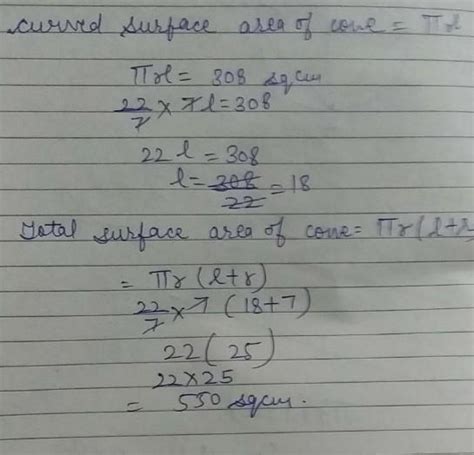 curved surface area of cone = πrl
πrl = 308 sqcm
22/7 × 7l = 308
22 l = 308
l = 308/22 = 18
Total surface area of cone = πr(l+r
= πr (l+r)
22/7 × 7 (18+7)
22 ( 25 )
22×25
= 550 sqcm.